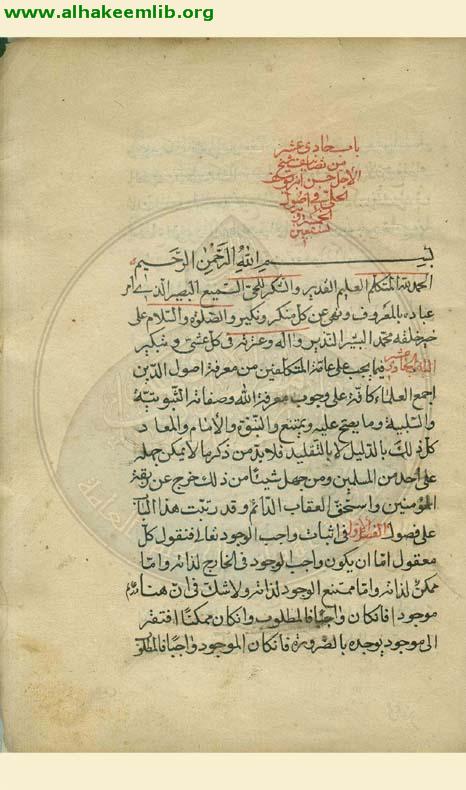 www.alhakeemlib.org
باب حادي عشر
من تصانيف شيخ
الاجل حسن ابن يوسف
الحلي في اصول
بسم الله الرحمن الرحيم
الحمد لله المتكلم العليم القدير والشكر للحي السميع البصير الذي امر
عباده بالمعروف ونهى عن كل منكر ونكير والصلوة والسلام على
خير خلقه محمد البشير النذير وآله وعترته في كل عشي وبكير
الباب الحادي عشر فيما يجب على عامة المتكلفين من معرفة اصول الدين
اجمع العلماء كافة على وجوب معرفة الله وصفاته الثبوتية
والسلبية وما يصح عليه ويمتنع والنبوة والامامة والمعاد
كل ذلك بالدليل لا بالتقليد فلا بد من ذكر ما لا يمكن جهله
على احد من المسلمين ومن جهل شيئا من ذلك خرج عن ربقة
المؤمنين واستحق العقاب الدائم وقد رتبت هذا الباب
على فصول الفصل الاول في اثبات واجب الوجود تعالى فنقول كل
معقول اما ان يكون واجب الوجود في الخارج لذاته واما
ممكن لذاته واما ممتنع الوجود لذاته ولا شك في ان هنا
موجودا فان كان واجبا فالمطلوب وان كان ممكنا افتقر
الى موجود يوجده بالضرورة فان كان الموجود واجبا فالمطلو